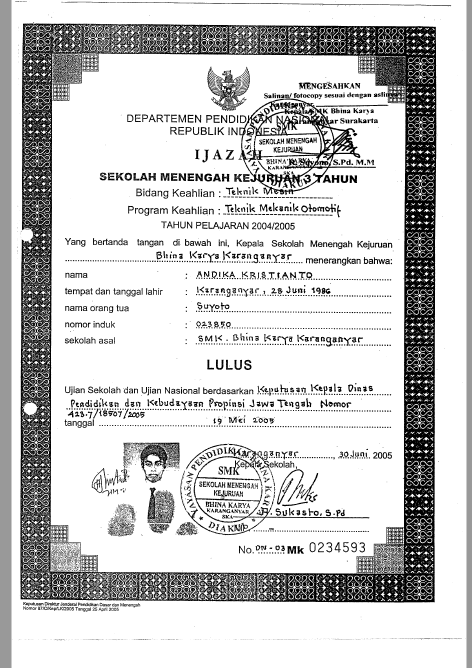 MENGESAHKAN
Salinan/fotocopy sesuai dengan aslinya
SMK Bhina Karya
Surakarta
S.Pd, M.M
DEPARTEMEN PENDIDIKAN NASIONAL
REPUBLIK INDONESIA
SMK
SEKOLAH MENENGAH
KEJURUAN
BHINA KARYA
IJAZAH
SEKOLAH MENENGAH KEJURUAN 3 TAHUN
Bidang Keahlian : Teknik Mesin
Program Keahlian : Teknik Mekanik Otomotif
TAHUN PELAJARAN 2004/2005
Yang bertanda tangan di bawah ini, Kepala Sekolah Menengah Kejuruan
Bhina Karya Karanganyar menerangkan bahwa:
nama : ANDIKA KRISTIANTO
tempat dan tanggal lahir : Karanganyar, 28 Juni 1986
nama orang tua : Suyoto
nomor induk : 023850
sekolah asal : SMK. Bhina Karya Karanganyar
LULUS
Ujian Sekolah dan Ujian Nasional berdasarkan Keputusan Kepala Dinas
Pendidikan dan Kebudayaan Propinsi Jawa Tengah Nomor
423.7/18507/2005
tanggal 19 Mei 2005
Karanganyar 30 Juni 2005
Kepala Sekolah,
YAYASAN PENDIDIKAN BHINA KARYA
SMK
SEKOLAH MENENGAH
KEJURUAN
BHINA KARYA
KARANGANYAR
SKA
DIAKUI
Sukasto, S.Pd
No. DN-03 Mk 0234593
Keputusan Direktur Jenderal Pendidikan Dasar dan Menengah
Tanggal 25 April 2005